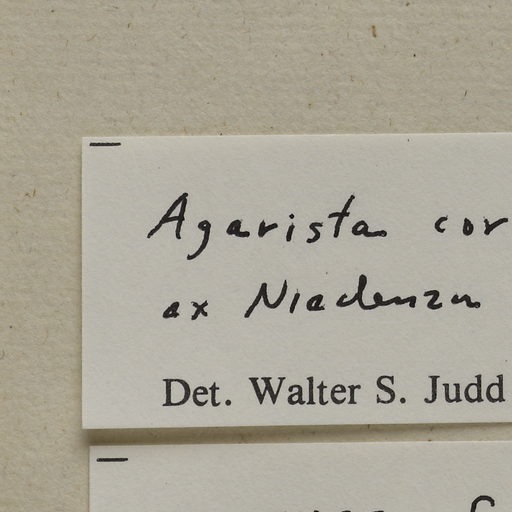 Agarista cor
ex Niedenzu
Det. Walter S. Judd